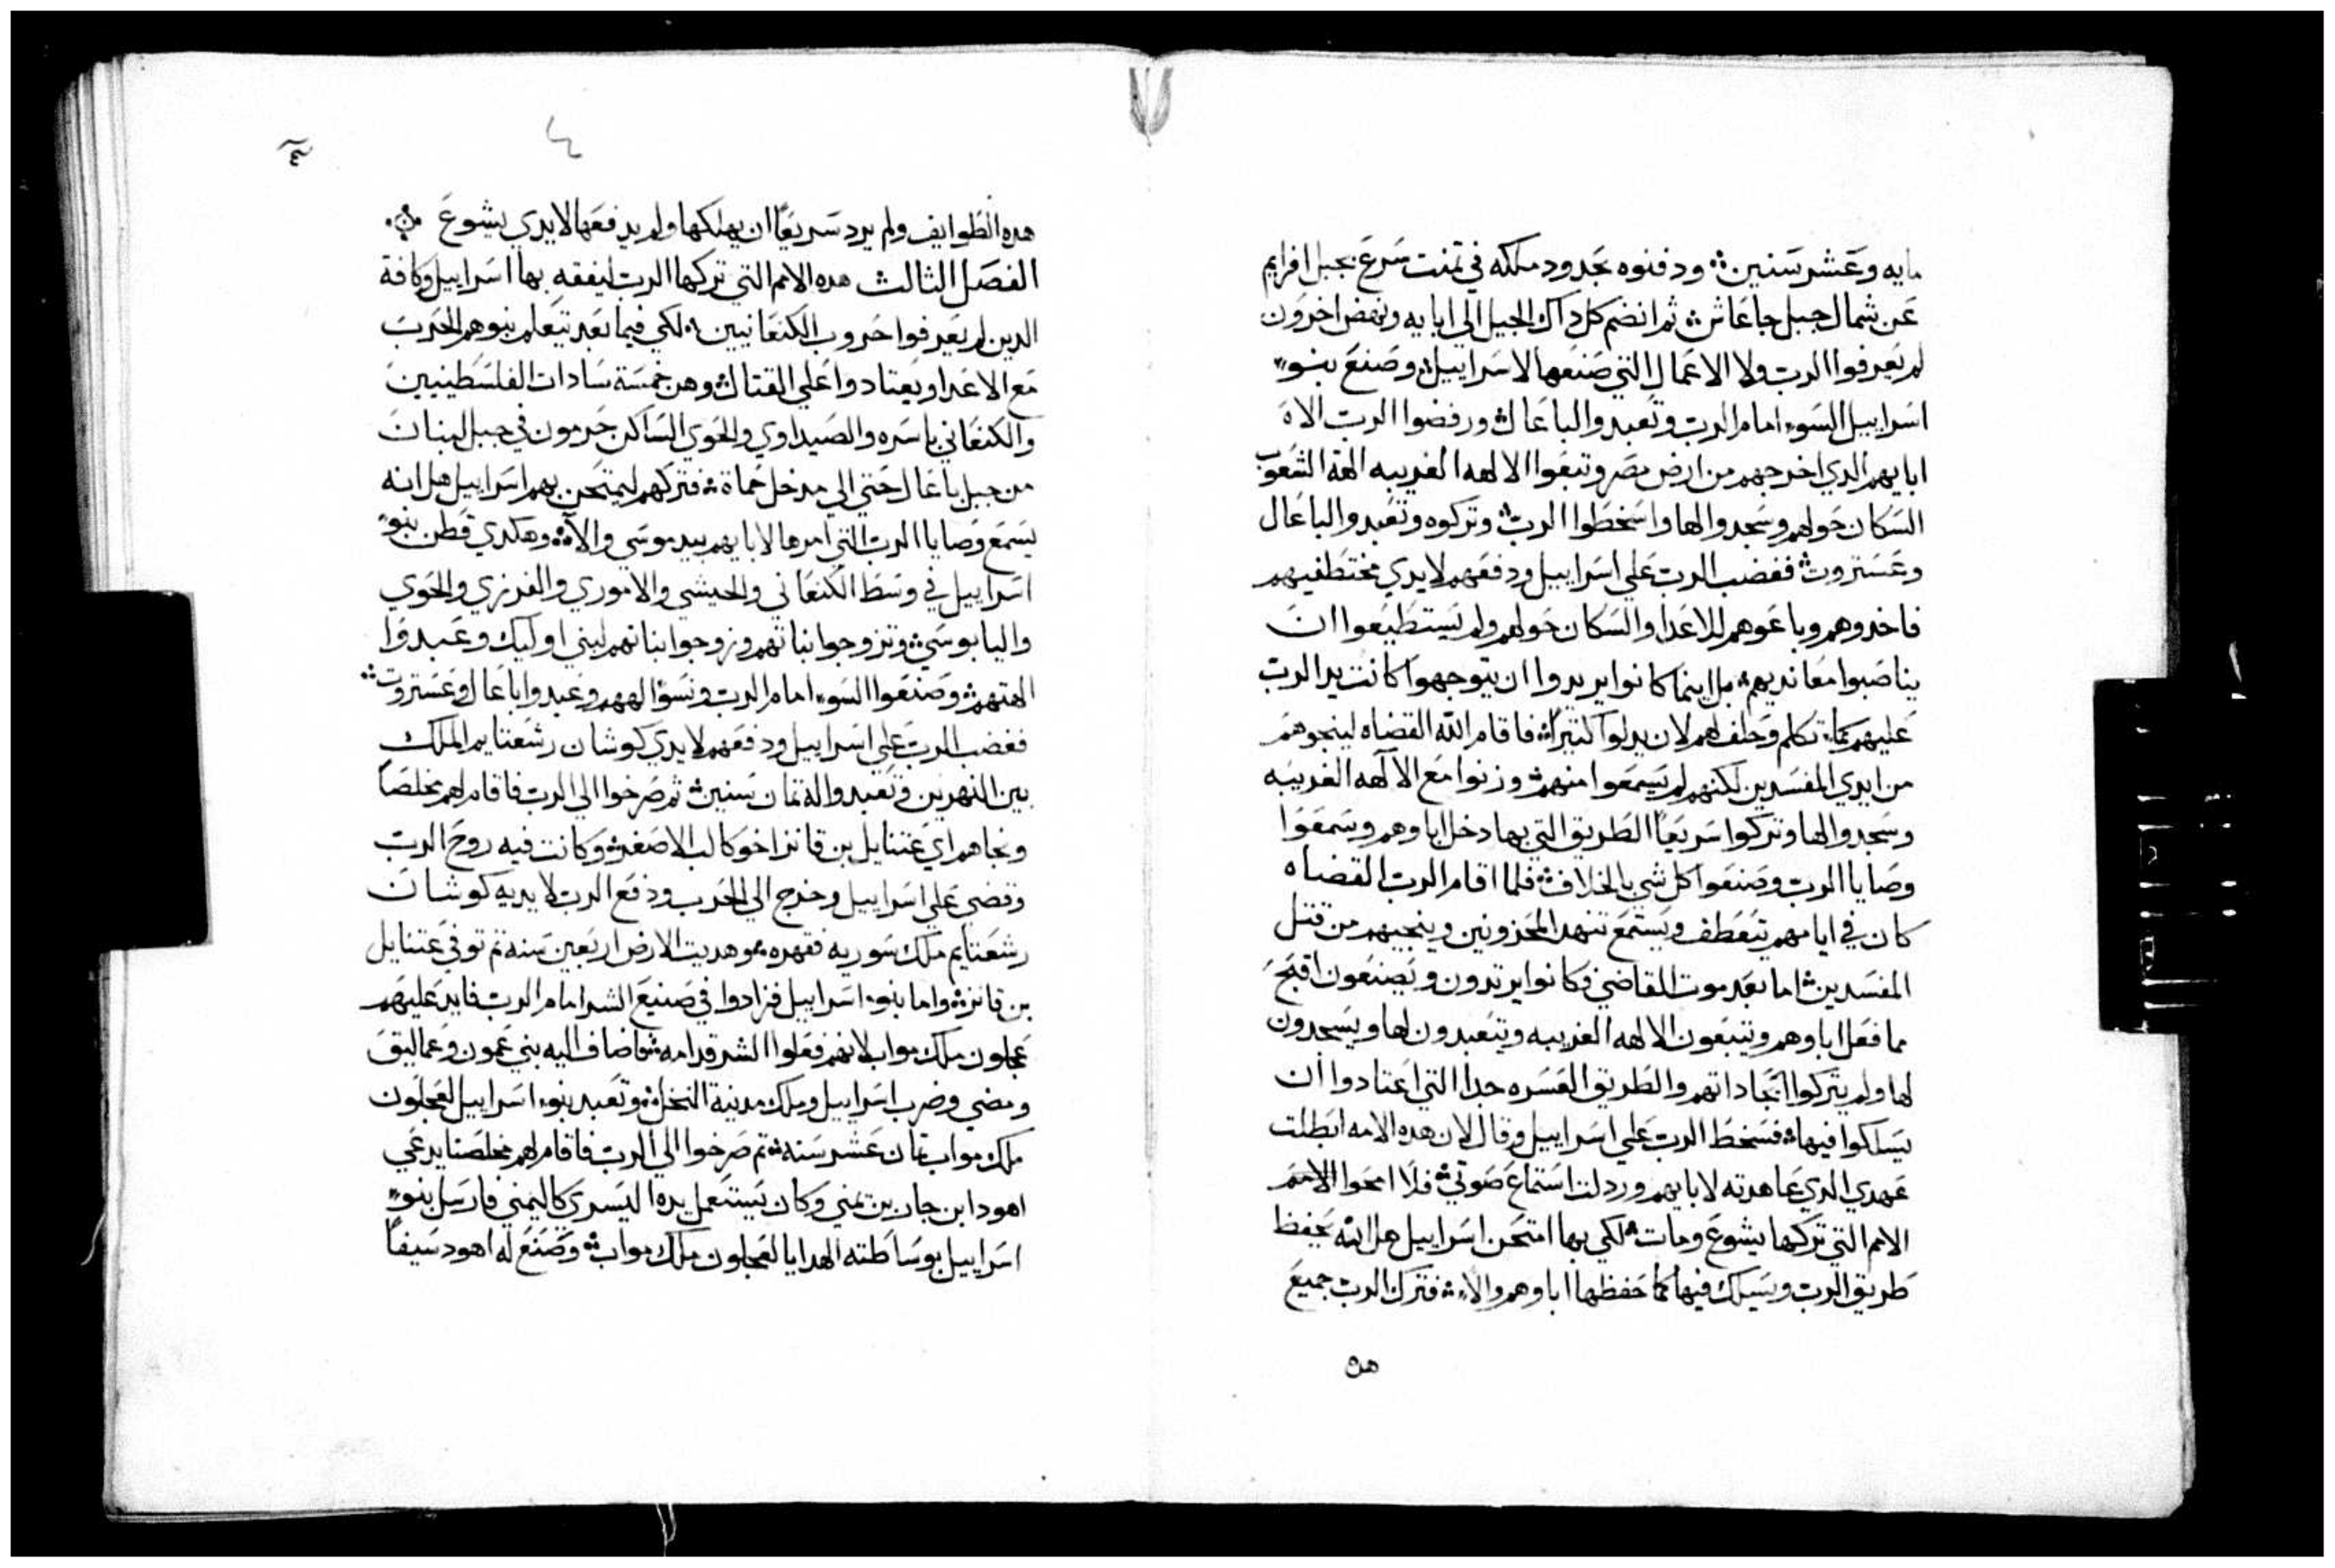 مايه وعشر سنين ودفنوه بحدود ملكه في تمنت سرع بجبل افرايم
عن شمال جبل جاعاش ثم انضم كل داك الجيل الي ابايه ونهض اخرون
لم يعرفوا الرب ولا الاعمال التي صنعها لاسراييل وصنع بنو
اسراييل السوء امام الرب وتعبدوا لباعال ورفضوا الرب الاه
ابايهم الدي اخرجهم من ارض مصر وتبعوا الالهه الغريبه الهة الشعوب
السكان حولهم وسجدوا لها واسخطوا الرب وتركوه وتعبدوا لباعال
وعستروت فغضب الرب علي اسراييل ودفعهم لايدي مختطفيهم
فاخدوهم وباعوهم للاعدا والسكان حولهم ولم يستطيعوا ان
يناصبوا معانديهم بل اينما كانوا يريدوا ان يتوجهوا كانت يد الرب
عليهم كما تكلم وحلف لهم لان يدلوا كتيرا فاقام الله القضاه لينجوهم
من ايدي المفسدين لكنهم لم يسمعوا منهم وزنوا مع الالهه الغريبه
وسجدوا لها وتركوا سريعا الطريق التي بها دخل اباوهم وسمعوا
وصايا الرب وصنعوا كل شي بالخلاف فلما اقام الرب القضاه
كان في ايامهم تنعطف ويستمع تنهد المحزونين وينجيهم من قتل
المفسدين اما بعد موت القاضي فكانوا يرتدون ويصنعون اقبح
مما فعل اباوهم ويتبعون الالهه الغريبه ويتعبدون لها ويسجدون
لها ولم يتركوا اتجاداتهم والطريق العسره جدا التي اعتادوا ان
يسلكوا فيها فسخط الرب علي اسراييل وقال لان هده الامه ابطلت
عهدي الدي عاهدته لابايهم وردلت استماع صوتي فلا امحوا الامم
الامم التي تركها يشوع ومات لكي بها امتحن اسراييل هل انه يحفظ
طريق الرب ويسلك فيها كما حفظها اباوهم والا فترك الرب جميع
هده
هده الطوايف ولم يرد سريعا ان يهلكها ولم يدفعها لايدي يشوع
الفصل الثالث هده الامم التي تركها الرب ليفقه بها اسراييل وكافة
الدين لم يعرفوا حروب الكنعانيين لكي فيما بعد تيعلم بنوهم الحرب
مع الاعدا ويعتادوا علي القتال وهن خمسة سادات الفلسطينيين
والكنعاني باسره والصيداوي والحوي الساكن حرمون في جبل لبنان
من جبل باعال حتي الي مدخل حماة فتركهم ليمتحن بهم اسراييل هل انه
يسمع وصايا الرب التي امرها لابايهم بيد موسي والا وهكدي قطن بنو
اسراييل في وسط الكنعاني والحيشي والاموري والفرزي والحوي
واليابوسي وتزوجوا بناتهم وزوجوا بناتهم لبني اوليك وعبدوا
الهتهم وصنعوا السوء امام الرب ونسوا الههم وعبدوا باعال وعستروت
فغضب الرب علي اسراييل ودفعهم لايدي كوشان رشعتايم الملك
بين النهرين وتعبدوا له تمان سنين ثم صرخوا الي الرب فاقام لهم مخلصا
ونجاهم اي عتنايل بن قانز اخو كالب الاصغر وكانت فيه روح الرب
وقضي علي اسراييل وخرج الي الحرب ودفع الرب لايديه كوشان
رشعتايم ملك سوريه فقهره وهديت الارض اربعين سنه تم توفي عتنايل
بن قانز واما بنو اسراييل فزادوا في صنيع الشر امام الرب فايد عليهم
عجلون ملك مواب لانهم فعلوا الشر قدامه فاضاف اليه بني عمون وعماليق
ومضي وضرب اسراييل وملك مدينة النخل وتعبد بنو اسراييل لعجلون
ملك مواب تمان عشر سنه تم صرخوا الي الرب فاقام لهم مخلصنا يدعي
اهود ابن جار بن يمني وكان يستعمل يده اليسري كاليمني فارسل بنو
اسراييل بوساطته الهدايا لعجلون ملك مواب وصنع له اهود سيفا